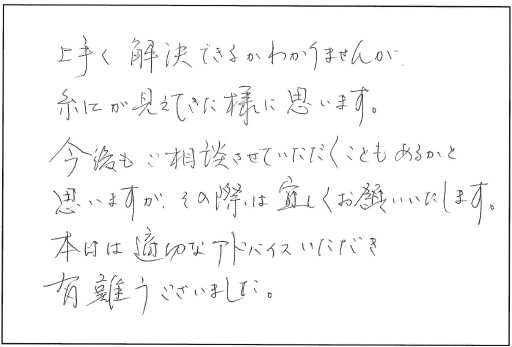 上手く解決できるかわかりませんが、
糸口が見えてきた様に思います。
今後もご相談させていただくこともあるかと
思いますが、その際は宜しくお願いいたします。
本日は適切なアドバイスいただき
有難うございました。